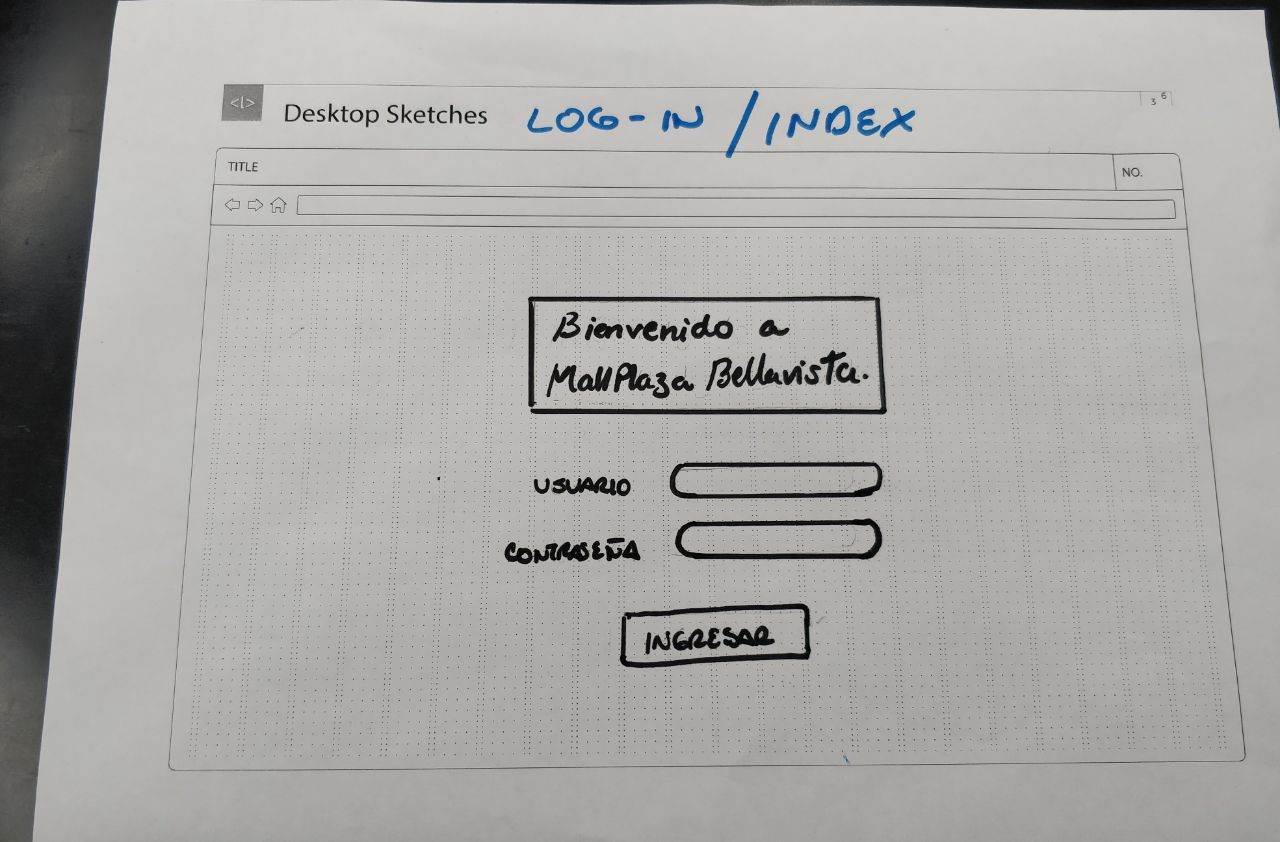 </>
Desktop Sketches LOG-IN / INDEX
36
TITLE NO.
Bienvenido a
MallPlaza Bellavista.
USUARIO
CONTRASEÑA
INGRESAR